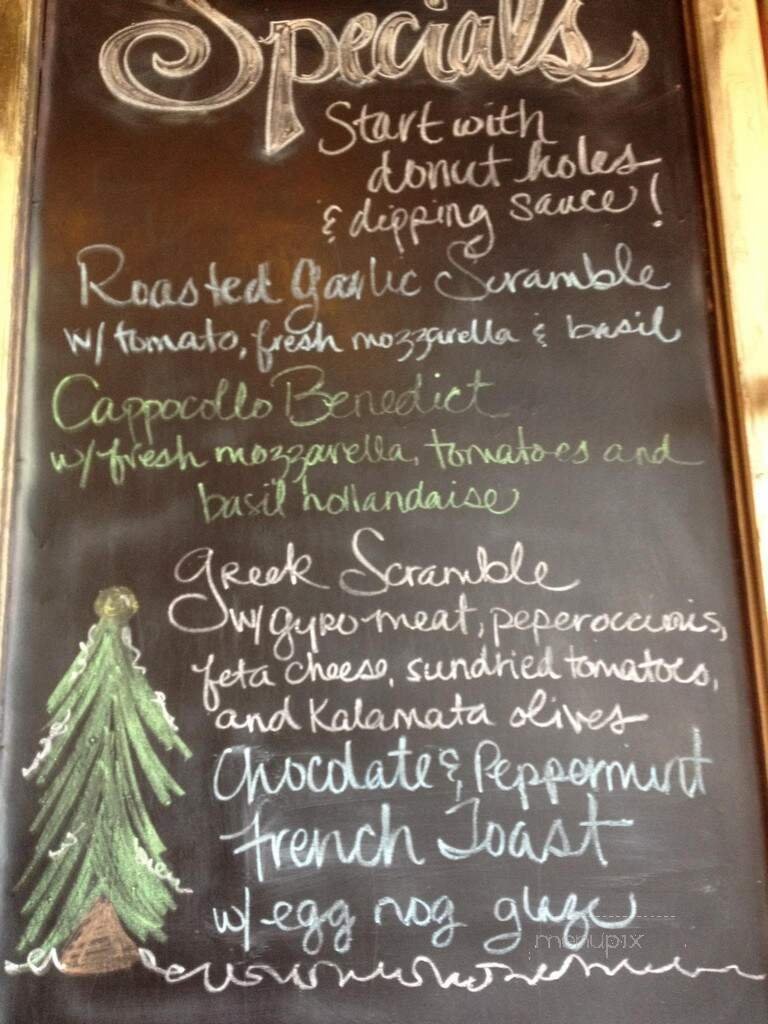 Specials
Start with
donut holes
& dipping sauce!
Roasted Garlic Scramble
w/ tomato, fresh mozzarella & basil
Cappocollo Benedict
w/ fresh mozzarella, tomatoes and
basil hollandaise
Greek Scramble
w/ gyro meat, peperoccinis,
feta cheese, sundried tomatoes,
and Kalamata olives
Chocolate & Peppermint
French Toast
w/ egg nog glaze
menupix